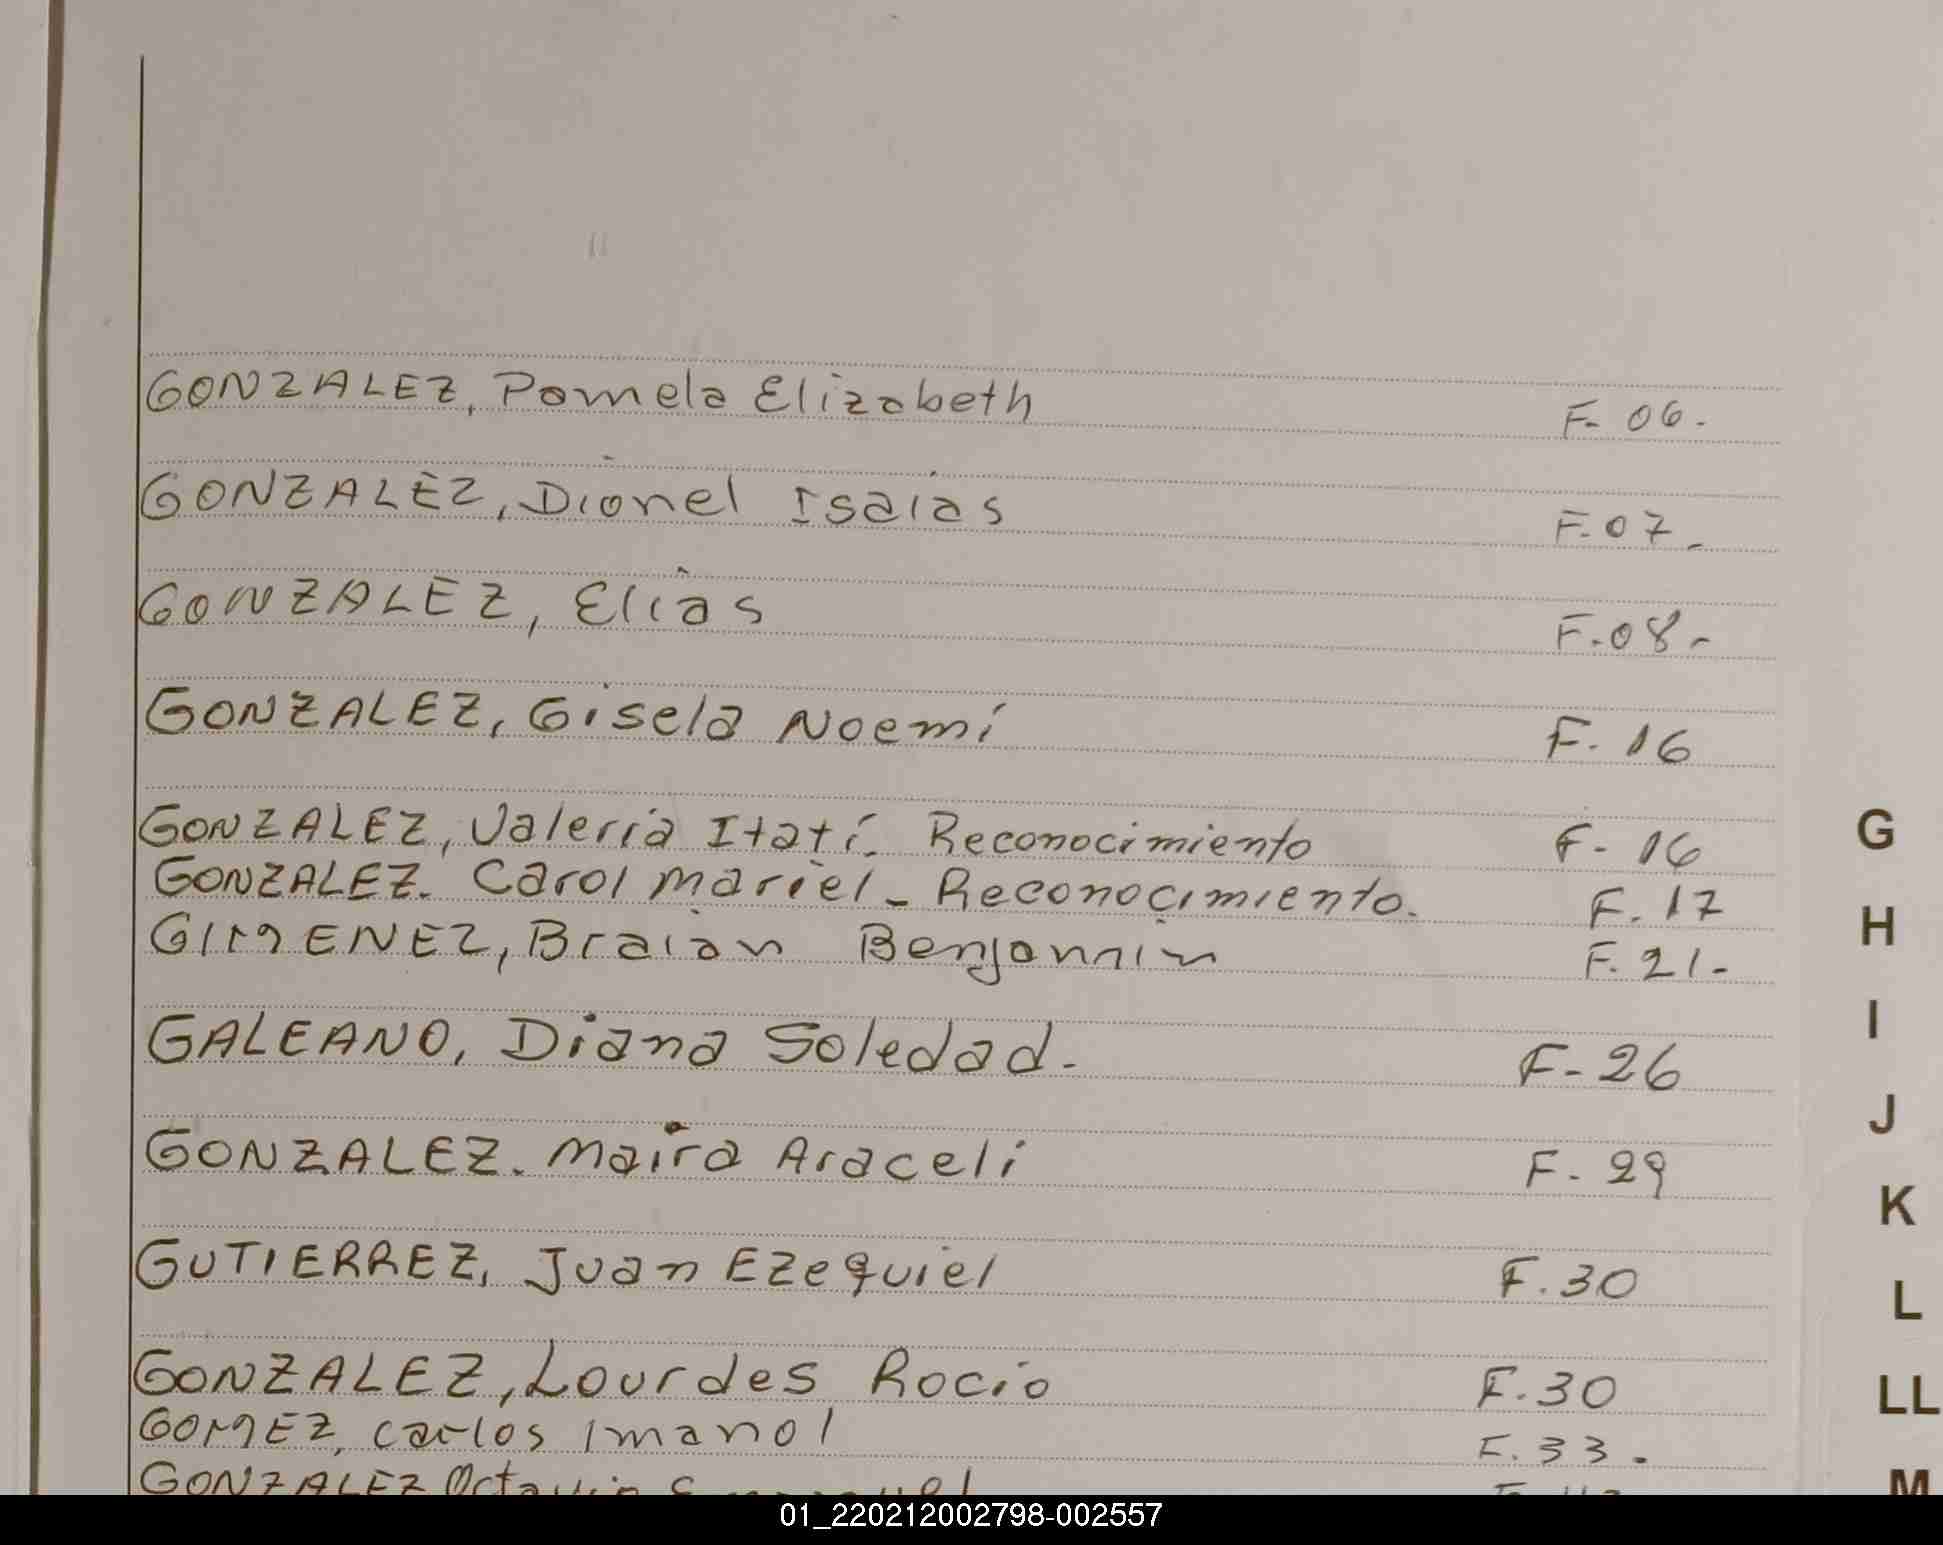 GONZALEZ, Pamela Elizabeth F- 06.
GONZALEZ, Dionel Isaias F.07_
GONZALEZ, Elias F.08-
GONZALEZ, Gisela Noemi F. 16
G
GONZALEZ, Valeria Itatí. Reconocimiento F- 16
GONZALEZ. Carol Mariel_ Reconocimiento. F. 17
H
GIMENEZ, Braian Benjamin F. 21-
I
GALEANO, Diana Soledad- F-26
J
GONZALEZ. Maira Araceli F. 29
K
GUTIERREZ, Juan Ezequiel F.30
L
GONZALEZ, Lourdes Rocio F.30
LL
GOMEZ, Carlos Imanol F.33.
GONZALEZ Octavio
M
01_220212002798-002557